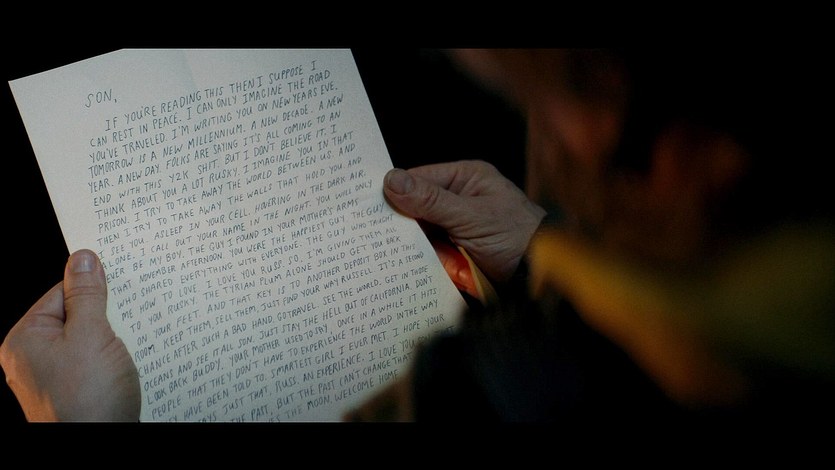 SON,
IF YOU'RE READING THIS THEN I SUPPOSE I
CAN REST IN PEACE. I CAN ONLY IMAGINE THE ROAD
YOU'VE TRAVELED. I'M WRITING YOU ON NEW YEARS EVE.
TOMORROW IS A NEW MILLENNIUM. A NEW DECADE. A NEW
YEAR. A NEW DAY. FOLKS ARE SAYING IT'S ALL COMING TO AN
END WITH THIS Y2K SHIT. BUT I DON'T BELIEVE IT. I
THINK ABOUT YOU A LOT RUSKY. I IMAGINE YOU IN THAT
PRISON. I TRY TO TAKE AWAY THE WORLD BETWEEN US. AND
THEN I TRY TO TAKE AWAY THE WALLS THAT HOLD YOU. AND
I SEE YOU ASLEEP IN YOUR CELL. HOVERING IN THE DARK AIR.
ALONE. I CALL OUT YOUR NAME IN THE NIGHT. YOU WILL ONLY
EVER BE MY BOY. THE GUY I FOUND IN YOUR MOTHER'S ARMS
THAT NOVEMBER AFTERNOON. YOU WERE THE HAPPIEST GUY. THE GUY
WHO SHARED EVERYTHING WITH EVERYONE. THE GUY WHO TAUGHT
ME HOW TO LOVE. I LOVE YOU RUSS. SO, I'M GIVING THEM ALL
TO YOU RUSKY. THE TYRIAN PLUM ALONE SHOULD GET YOU BACK
ON YOUR FEET. AND THAT KEY IS TO ANOTHER DEPOSIT BOX IN THIS
ROOM. KEEP THEM, SELL THEM, JUST FIND YOUR WAY RUSSELL. IT'S A SECOND
CHANCE AFTER SUCH A BAD HAND. GO TRAVEL. SEE THE WORLD. GET IN THOSE
OCEANS AND SEE IT ALL SON. JUST STAY THE HELL OUT OF CALIFORNIA. DON'T
LOOK BACK BUDDY. YOUR MOTHER USED TO SAY, ONCE IN A WHILE IT HITS
PEOPLE THAT THEY DON'T HAVE TO EXPERIENCE THE WORLD IN THE WAY
THEY HAVE BEEN TOLD TO. SMARTEST GIRL I EVER MET. I HOPE YOUR
JUST THAT, RUSS. AN EXPERIENCE. I LOVE YOU
THE PAST, BUT THE PAST CAN'T CHANGE THAT
THE MOON. WELCOME HOME